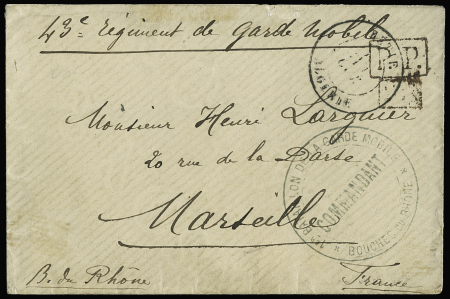 43e Régiment de garde Mobile
P.P.
Monsieur Henri Larguier
20 rue de la Darse
Marseille
1er BATAILLON DE LA GARDE MOBILE * BOUCHES DU RHÔNE *
COMMANDANT
B. du Rhône
France